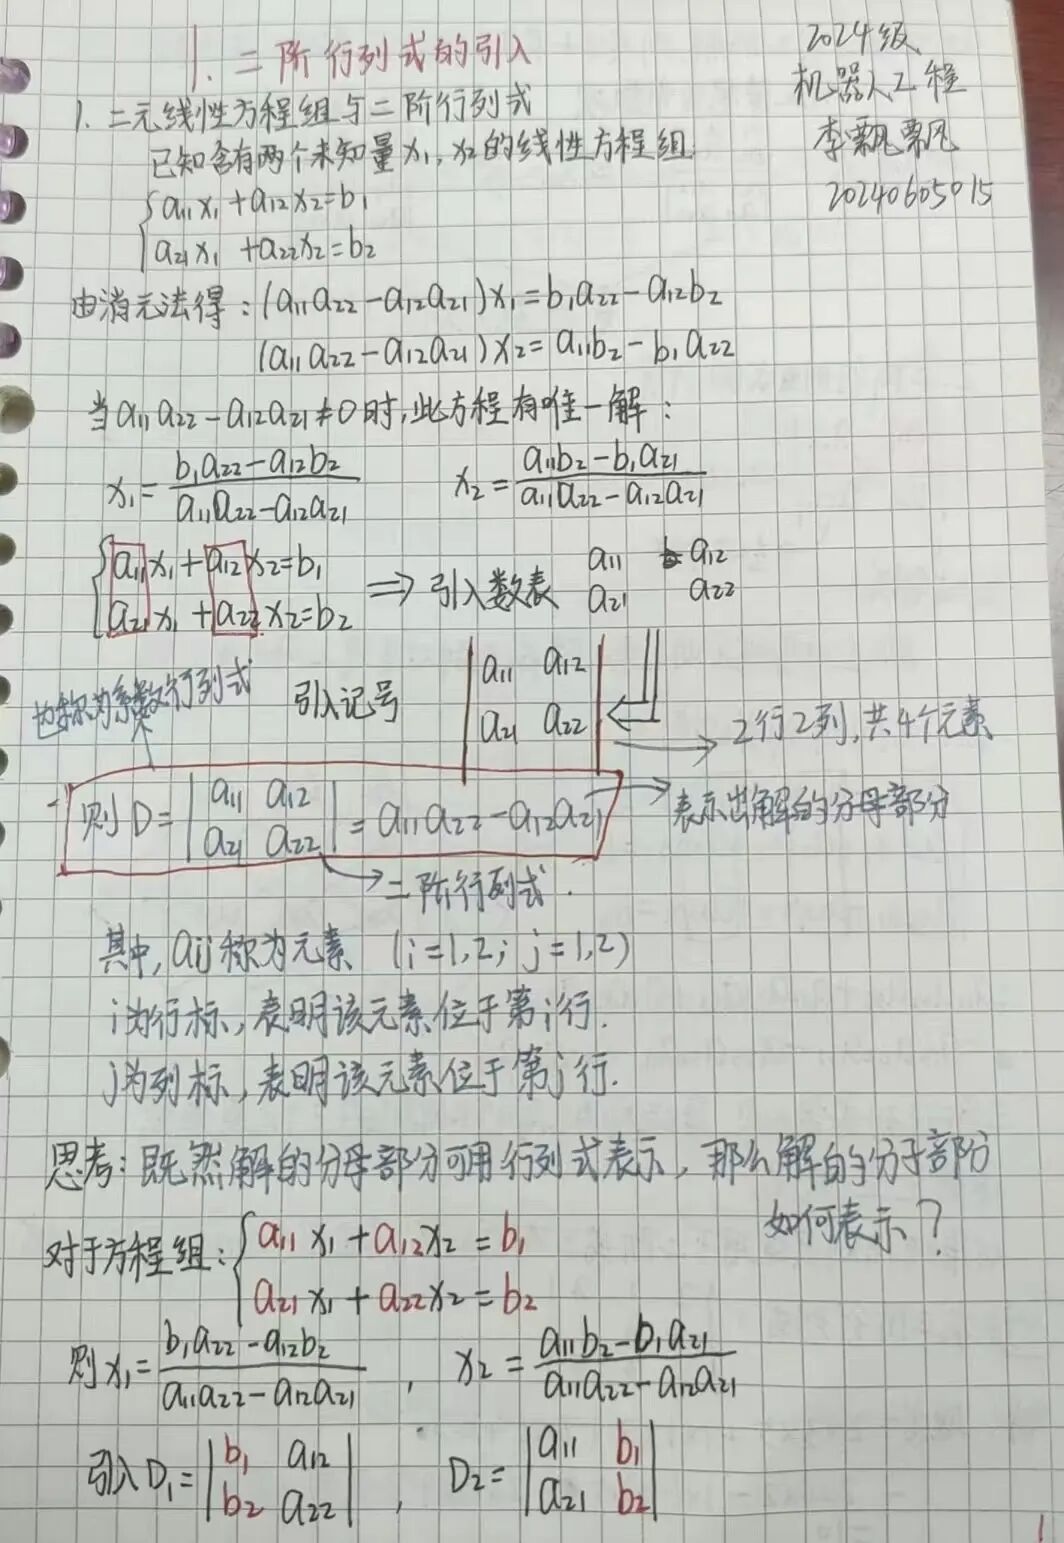 1. 二阶行列式的引入
2024级
机器人工程
李飘飘
20240605015
1. 二元线性方程组与二阶行列式
已知含有两个未知量x₁, x₂的线性方程组
{a₁₁x₁+a₁₂x₂=b₁
{a₂₁x₁+a₂₂x₂=b₂
由消元法得：(a₁₁a₂₂-a₁₂a₂₁)x₁=b₁a₂₂-a₁₂b₂
(a₁₁a₂₂-a₁₂a₂₁)x₂=a₁₁b₂-b₁a₂₂
当a₁₁a₂₂-a₁₂a₂₁≠0时,此方程有唯一解：
x₁=(b₁a₂₂-a₁₂b₂)/(a₁₁a₂₂-a₁₂a₂₁) x₂=(a₁₁b₂-b₁a₂₁)/(a₁₁a₂₂-a₁₂a₂₁)
{a₁₁x₁+a₁₂x₂=b₁ a₁₁ a₁₂
{a₂₁x₁+a₂₂x₂=b₂ ⇒ 引入数表 a₂₁ a₂₂
也称为系数行列式
引入记号 |a₁₁ a₁₂|
|a₂₁ a₂₂| → 2行2列,共4个元素
则D=|a₁₁ a₁₂|
|a₂₁ a₂₂|=a₁₁a₂₂-a₁₂a₂₁ → 表示出解的分母部分
→二阶行列式.
其中, aij称为元素 (i=1,2; j=1,2)
i为行标,表明该元素位于第i行.
j为列标,表明该元素位于第j行.
思考：既然解的分母部分可用行列式表示,那么解的分子部分
如何表示？
对于方程组：{a₁₁x₁+a₁₂x₂=b₁
{a₂₁x₁+a₂₂x₂=b₂
则x₁=(b₁a₂₂-a₁₂b₂)/(a₁₁a₂₂-a₁₂a₂₁), x₂=(a₁₁b₂-b₁a₂₁)/(a₁₁a₂₂-a₁₂a₂₁)
引入D₁=|b₁ a₁₂|, D₂=|a₁₁ b₁|
|b₂ a₂₂| |a₂₁ b₂|
1